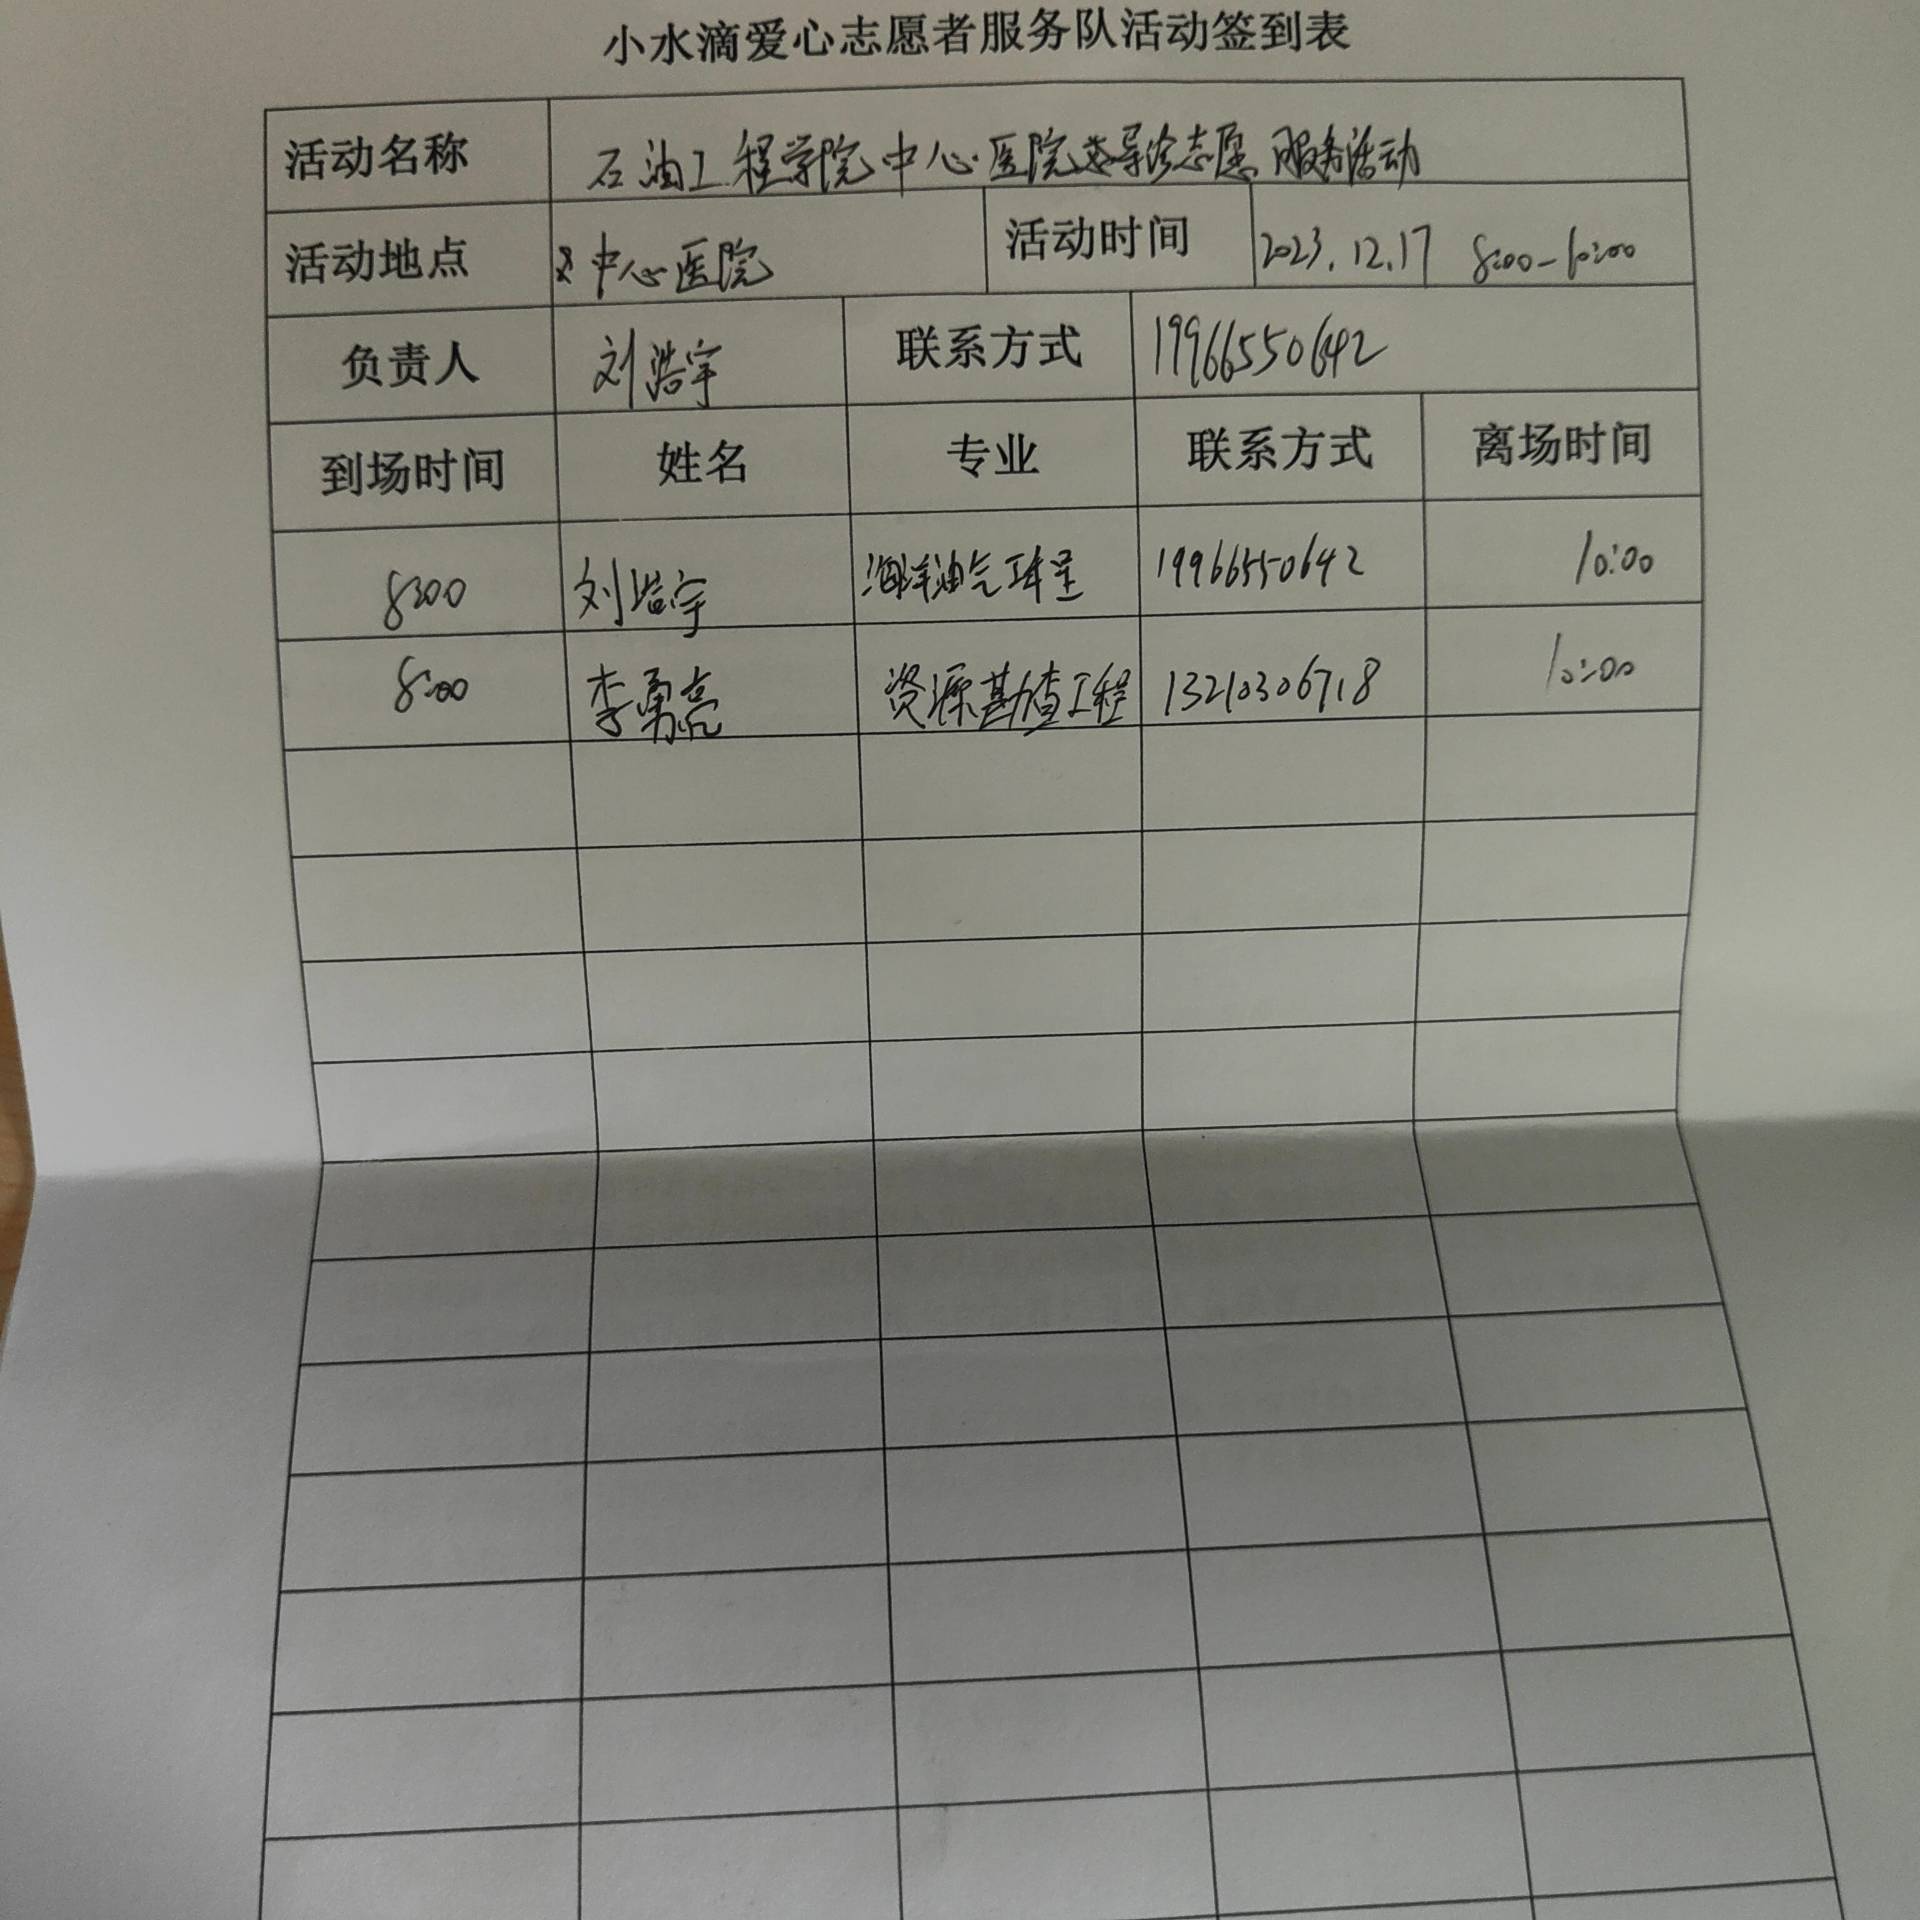 小水滴爱心志愿者服务队活动签到表
活动名称 石油工程学院中心医院导诊志愿服务活动
活动地点 中心医院 活动时间 2023.12.17 8:00-10:00
负责人 刘浩宇 联系方式 19966550642
到场时间 姓名 专业 联系方式 离场时间
8:00 刘浩宇 海洋油气工程 19966550642 10:00
8:00 李勇亮 资源勘查工程 13210306718 10:00